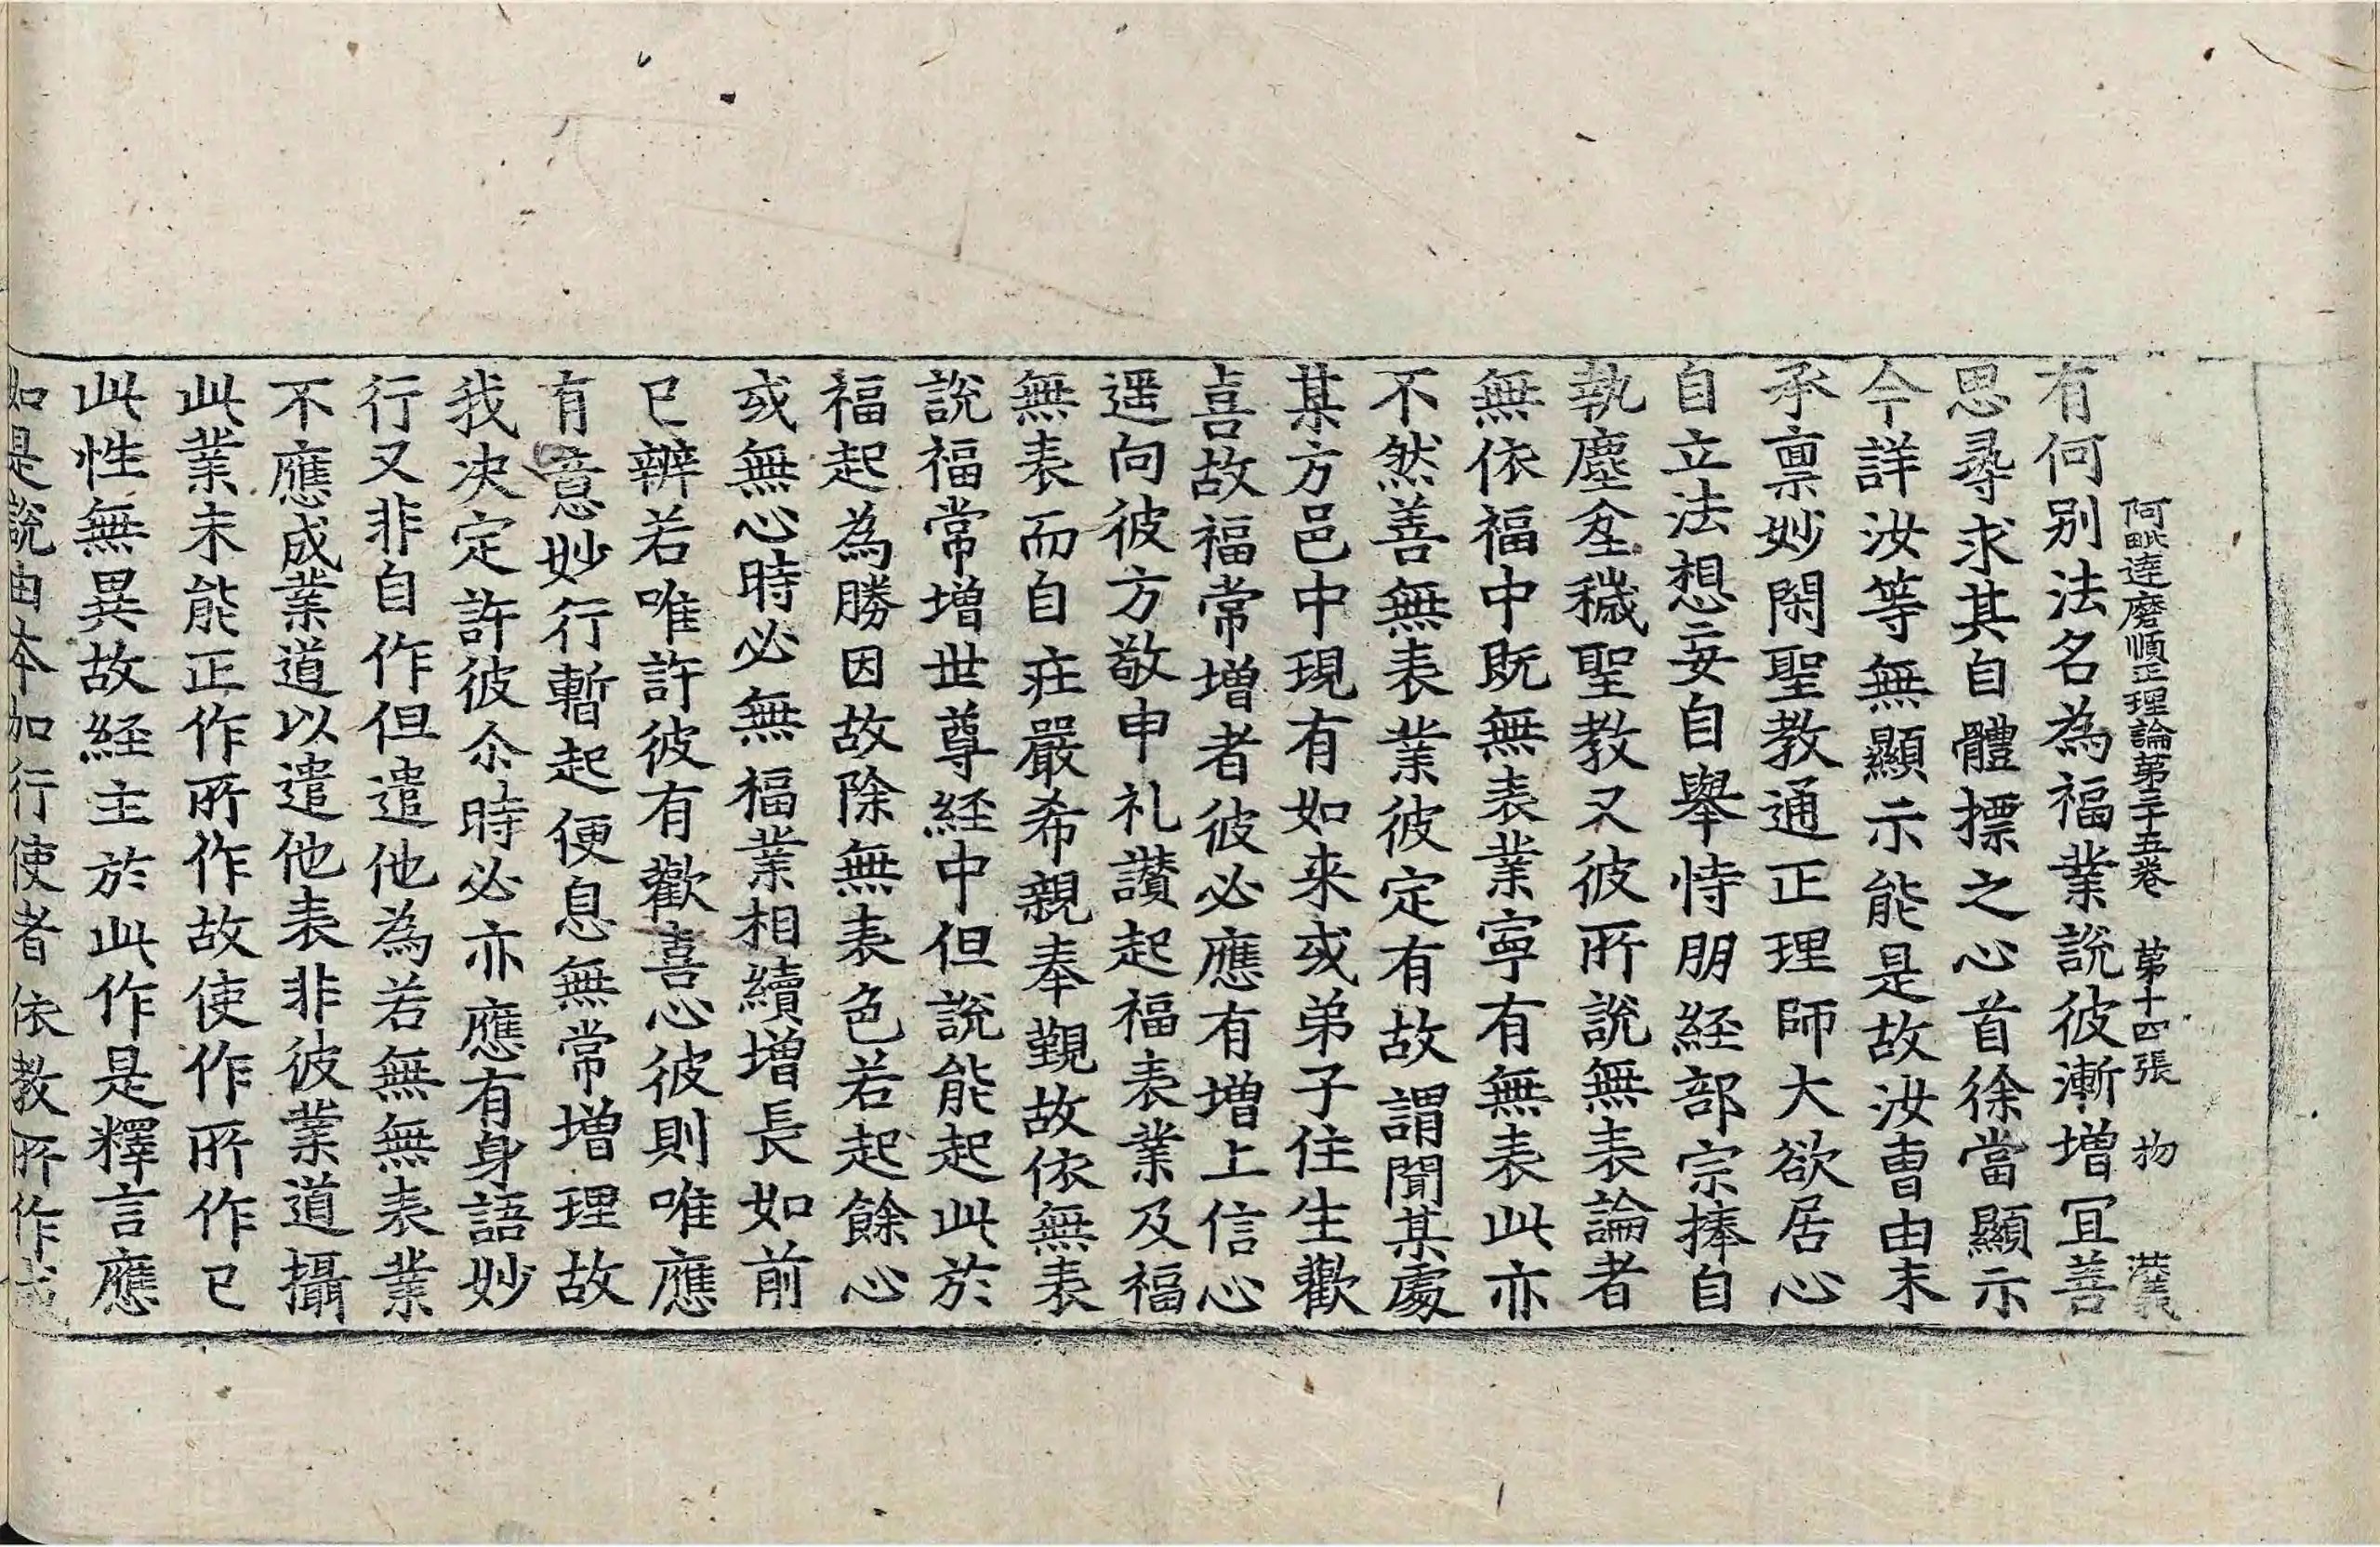 阿毗達磨順正理論第三十五卷　第十四張　物　洪義
有何别法名為福業說彼漸增冝善
思尋求其自體摽之心首徐當顯示
今詳汝等無顯示能是故汝曺由未
承禀妙閑聖教通正理師大欲居心
自立法想妄自舉恃朋経部宗捧自
執塵坌穢聖教又彼所說無表論者
無依福中既無表業寧有無表此亦
不然善無表業彼定有故謂聞某處
某方邑中現有如来或弟子住生歡
喜故福常增者彼必應有增上信心
遥向彼方敬申礼讃起福表業及福
無表而自荘嚴希親奉覲故依無表
說福常增世尊経中但說能起此於
福起為勝因故除無表色若起餘心
或無心時必無福業相續增長如前
已辨若唯許彼有歡喜心彼則唯應
有意妙行暫起便息無常增理故
我决定許彼尒時必亦應有身語妙
行又非自作但遣他為若無無表業
不應成業道以遣他表非彼業道攝
此業未能正作所作故使作所作已
此性無異故経主於此作是釋言應
如是說由本加行使者依教所作成